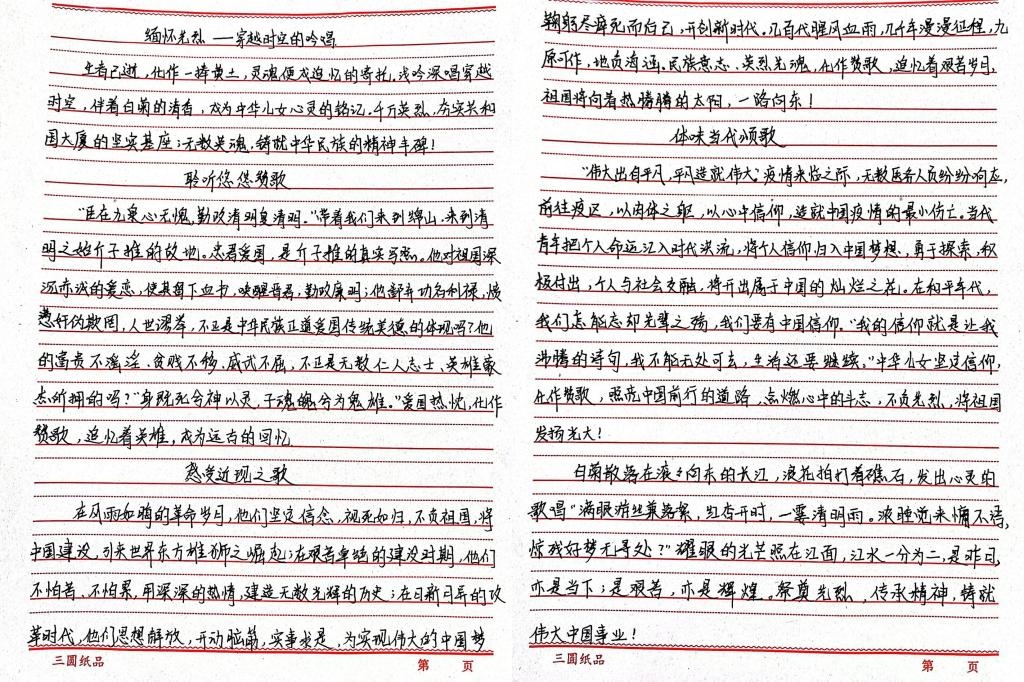 缅怀先烈 — 穿越时空的吟唱
生者已逝，化作一抔黄土，灵魂便成追忆的寄托，浅吟深唱穿越
时空，伴着白菊的清香，成为中华儿女心灵的铭记，千万英烈，夯实共和
国大厦的坚实基座；无数英魂，铸就中华民族的精神丰碑！
聆听悠悠赞歌
“臣在九泉心无愧，勤政清明复清明。”带着我们来到绵山，来到清
明之始介子推的故地。忠君爱国，是介子推的真实写照。他对祖国深
沉赤诚的爱恋，使其留下血书，唤醒晋君，勤政廉明；他鄙弃功名利禄，愤
恚奸伪欺罔，人世浊莽，不正是中华民族正道爱国传统美德的体现吗？他
的富贵不淫、贫贱不移、威武不屈，不正是无数仁人志士、英雄豪
杰所拥的吗？“身既死兮神以灵，子魂魄兮为鬼雄。”爱国热忱，化作
赞歌，追忆着英雄，成为远古的回忆
感受近现之歌
在风雨如晦的革命岁月，他们坚定信念，视死如归，不负祖国，将
中国建设，引来世界东方雄狮之崛起；在艰苦卓绝的建设时期，他们
不怕苦、不怕累，用深深的热情，建造无数光辉的历史；在日新月异的改
革时代，他们思想解放，开动脑筋，实事求是，为实现伟大的中国梦
鞠躬尽瘁死而后已，开创新时代。几百代腥风血雨，几千年漫漫征程，九
原可作，地负海涵。民族意志、英烈先魂，化作赞歌，追忆着艰苦岁月，
祖国将向着热腾腾的太阳，一路向东！
体味当代颂歌
“伟大出自平凡，平凡造就伟大。疫情来临之际，无数医务人员纷纷响应，
前往疫区，以肉体之躯，以心中信仰，造就中国疫情的最小伤亡。当代
青年把个人命运汇入时代洪流，将个人信仰归入中国梦想，勇于探索，积
极付出，个人与社会交融，将开出属于中国的灿烂之花。在和平年代，
我们怎能忘却先辈之殇，我们要有中国信仰。“我的信仰就是让我
沸腾的诗句，我不能无处可去，生活还要继续。”中华儿女坚定信仰，
化作赞歌，照亮中国前行的道路，点燃心中的斗志，不负先烈，将祖国
发扬光大！
白菊散落在滚滚向东的长江，浪花拍打着礁石，发出心灵的
歌唱“满眼游丝兼落絮，红杏开时，一霎清明雨。浓睡觉来慵不语，
惊残好梦无寻处？”耀眼的光芒照在江面，江水一分为二，是昨日，
亦是当下；是艰苦，亦是辉煌。祭奠先烈，传承精神，铸就
伟大中国事业！
三圆纸品 第 页
三圆纸品 第 页